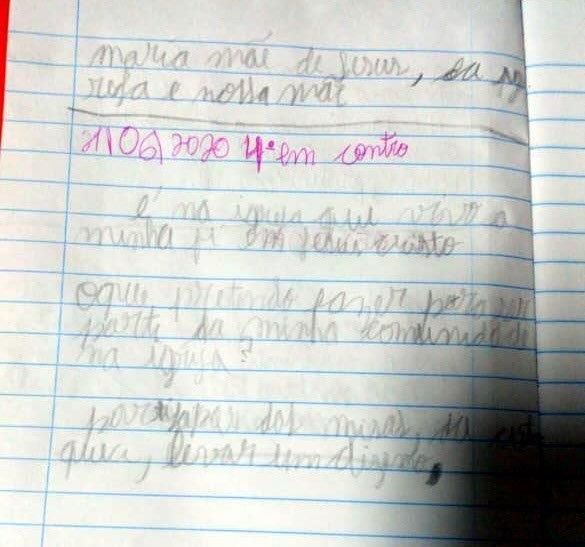 maria mãe de jesus, da ig
reja e nossa mãe
21/06/2020 4º em contro
é na igreja que vivo a
minha fé em jesus cristo
oque pretendo fazer para ser
parte da minha comunidade
na igreja?
participar das misas, da cate
quese, levar um dizimo,